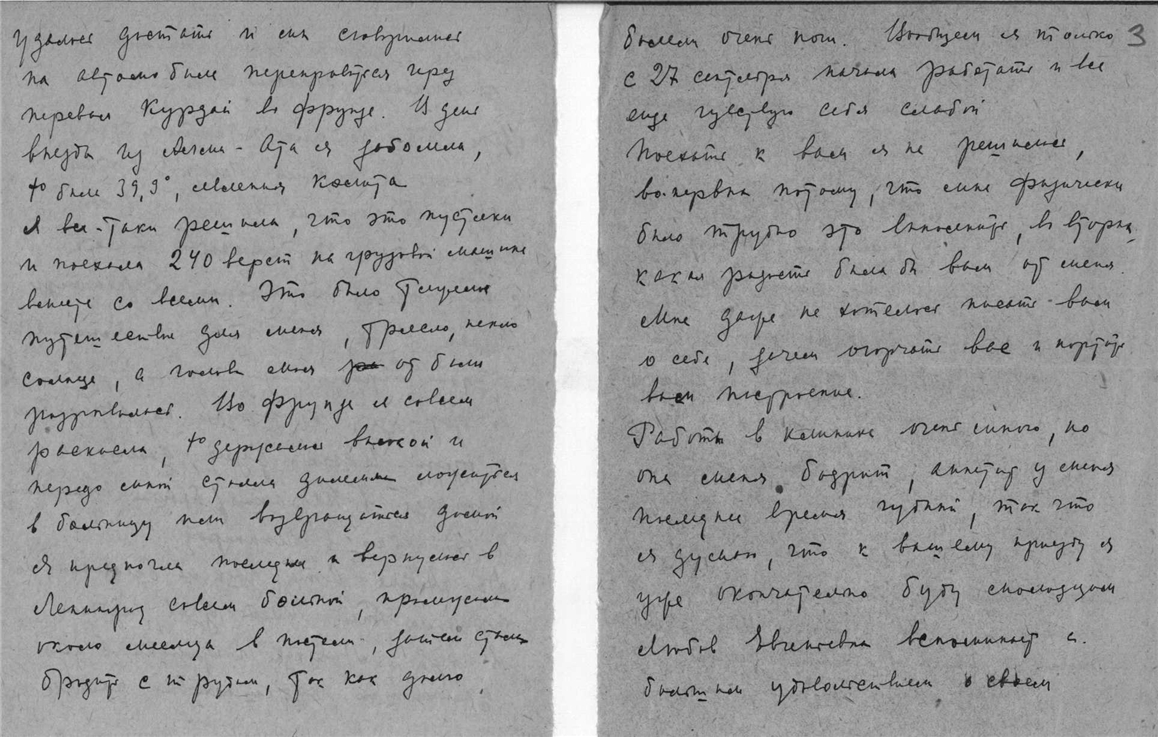 удалось достать и мы сговорились
на автомобиле переправиться через
перевал Курдай во Фрунзе. В день
выезда из Алма-Ата я заболела,
t° была 39,9°, явления колита
Я все-таки решила, что это пустяки
и поехала 240 верст на грузовой машине
вместе со всеми. Это было
путешествие для меня, трясло, пекло
солнце, а голова моя от боли
разрывалась. Во Фрунзе я совсем
раскисла, t° держалась высокой и
передо мной стояла дилемма ложиться
в больницу или возвращаться домой
Я предпочла последнее и вернулась в
Ленинград совсем больной, пролежала
около месяца в постели, затем стала
бродить с трудом, так как долго
3
болели очень ноги. Вообщем я только
с 27 сентября начала работать и все
еще чувствую себя слабой
Поехать к вам я не решилась,
во-первых потому, что мне физически
было трудно это выполнить, во вторых
какая радость была бы вам от меня.
Мне даже не хотелось писать вам
о себе, зачем огорчать вас и портить
вам настроение.
Работы в клинике очень много, но
она меня бодрит, аппетит у меня
последнее время чудный, так что
я думаю, что к вашему приезду я
уже окончательно буду молодцом
Любовь Евгеньевна вспоминает с
большим удовольствием о своем